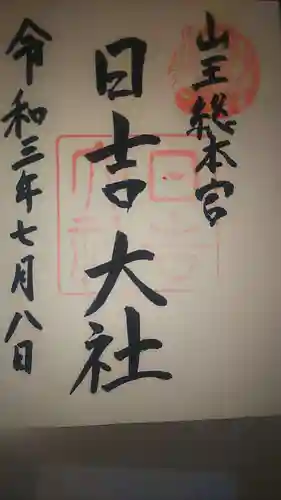 山王総本宮
日吉大社
令和三年七月八日